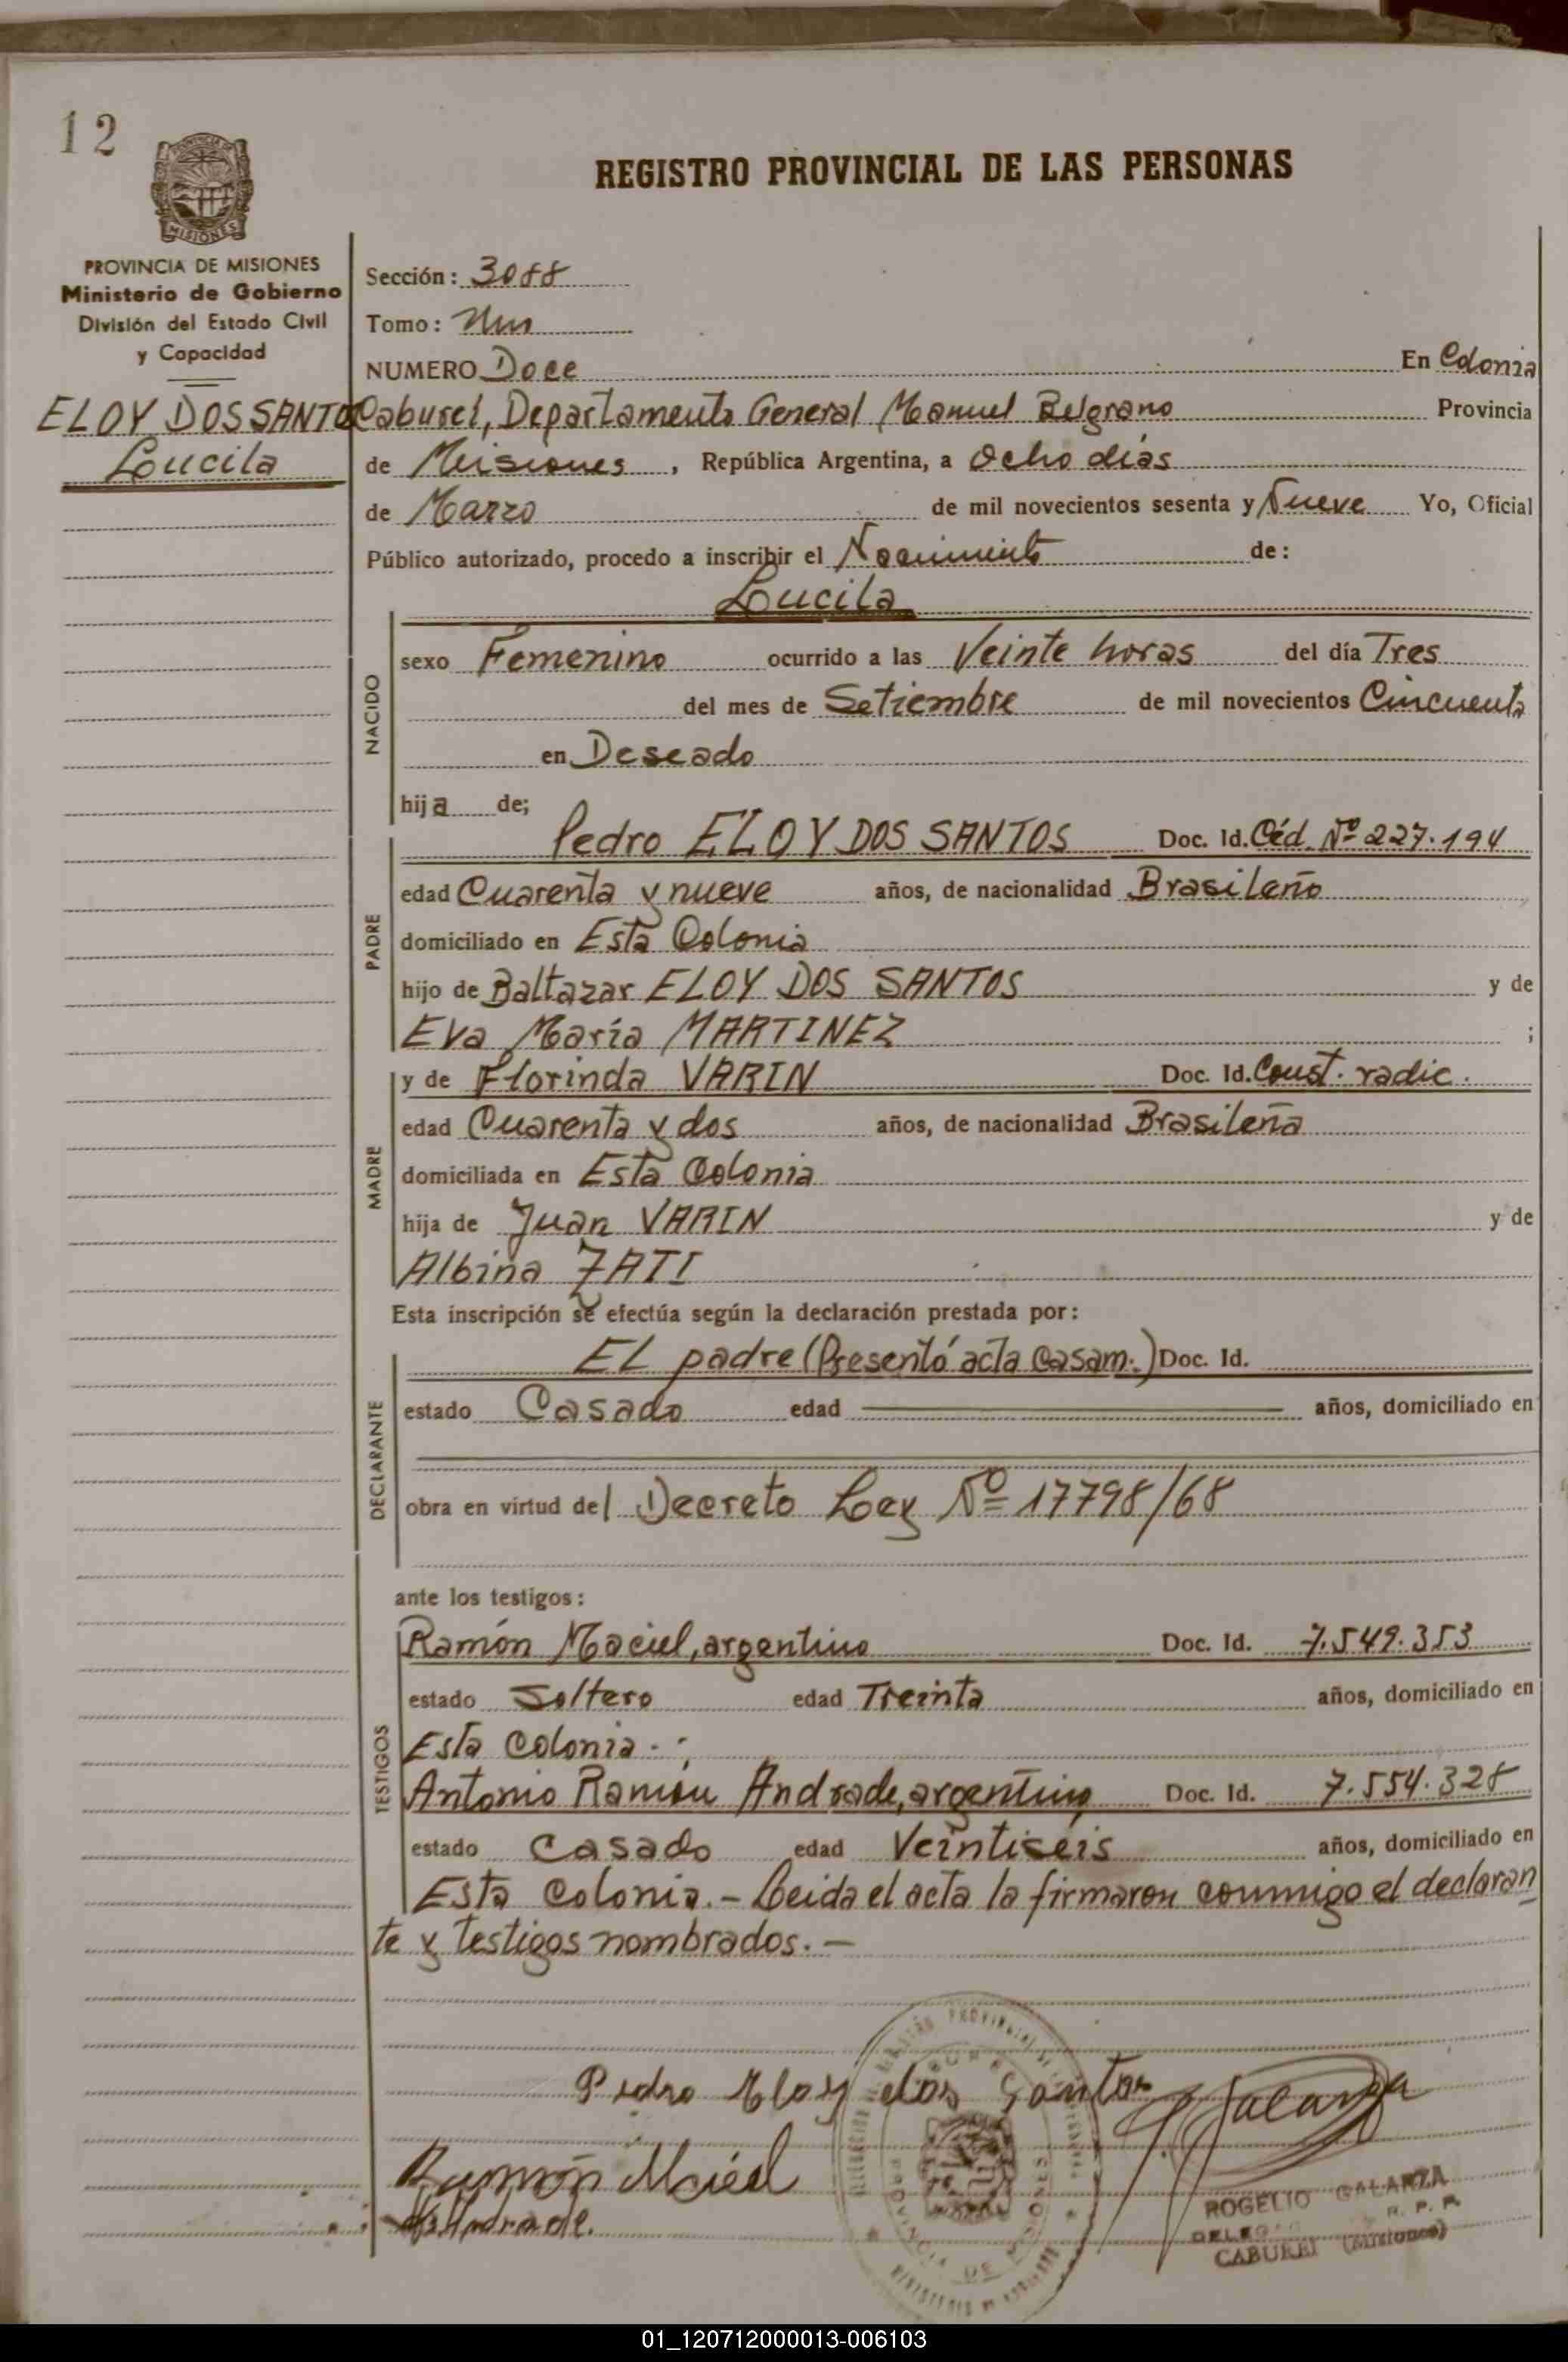 12
REGISTRO PROVINCIAL DE LAS PERSONAS
PROVINCIA DE MISIONES
Ministerio de Gobierno
División del Estado Civil
y Capacidad
ELOY DOS SANTO
Lucila
Sección: 3088
Tomo: Uno
NUMERO Doce En Colonia
Caburei, Departamento General Manuel Belgrano Provincia
de Misiones, República Argentina, a Ocho días
de Marzo de mil novecientos sesenta y Nueve Yo, Oficial
Público autorizado, procedo a inscribir el Nacimiento de:
Lucila
NACIDO
sexo Femenino ocurrido a las Veinte horas del día Tres
del mes de Setiembre de mil novecientos Cincuenta
en Deseado
hija de;
PADRE
Pedro ELOY DOS SANTOS Doc. Id. Céd. Nº 227.194
edad Cuarenta y nueve años, de nacionalidad Brasileño
domiciliado en Esta Colonia
hijo de Baltazar ELOY DOS SANTOS y de
Eva María MARTINEZ ;
MADRE
y de Florinda VARIN Doc. Id. Const. radic.
edad Cuarenta y dos años, de nacionalidad Brasileña
domiciliada en Esta Colonia
hija de Juan VARIN y de
Albina ZATI
Esta inscripción se efectúa según la declaración prestada por:
DECLARANTE
EL padre (Presentó acta Casam.) Doc. Id.
estado Casado edad años, domiciliado en
obra en virtud del Decreto Ley Nº 17798/68
ante los testigos:
TESTIGOS
Ramón Maciel, argentino Doc. Id. 7.549.353
estado Soltero edad Treinta años, domiciliado en
Esta Colonia.-;
Antonio Ramón Andrade, argentino Doc. Id. 7.554.328
estado Casado edad Veintiséis años, domiciliado en
Esta Colonia.- Leida el acta la firmaron conmigo el declaran
te y testigos nombrados.-
Pedro Eloy dos Santos
Galarza
Ramón Maciel
Andrade.
PROVINCIA DE MISIONES
ROGELIO GALARZA
R. P. P.
CABUREI (Misiones)
01_120712000013-006103